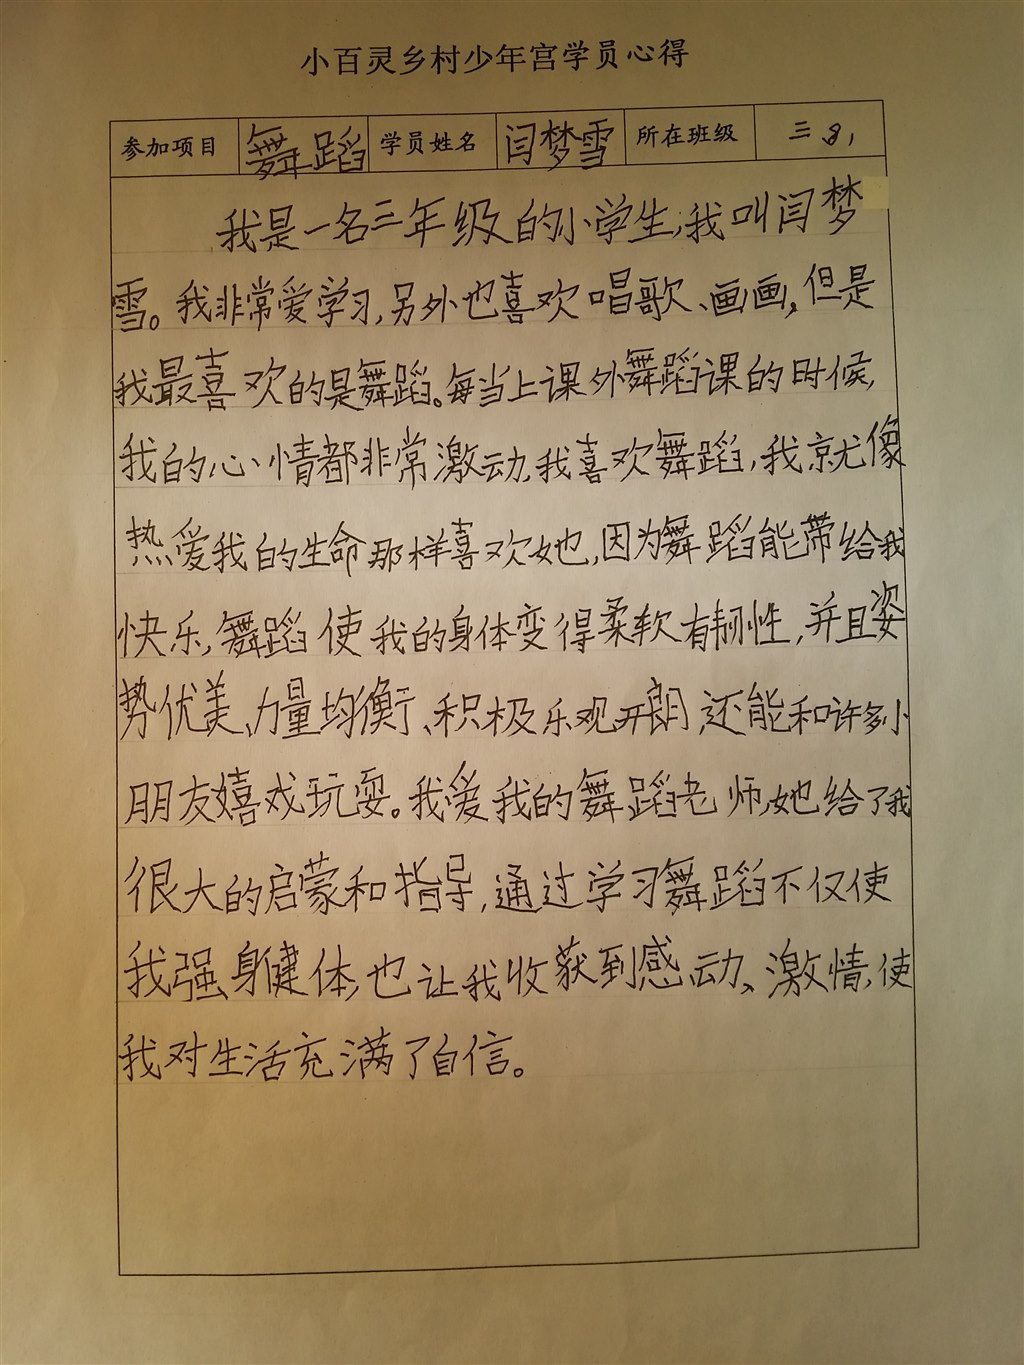 小百灵乡村少年宫学员心得
参加项目 舞蹈 学员姓名 闫梦雪 所在班级 三.8.1
我是一名三年级的小学生,我叫闫梦
雪。我非常爱学习,另外也喜欢唱歌、画画,但是
我最喜欢的是舞蹈。每当上课外舞蹈课的时候,
我的心情都非常激动,我喜欢舞蹈,我就像
热爱我的生命那样喜欢她,因为舞蹈能带给我
快乐,舞蹈使我的身体变得柔软有韧性,并且姿
势优美、力量均衡、积极乐观开朗,还能和许多小
朋友嬉戏玩耍。我爱我的舞蹈老师,她给了我
很大的启蒙和指导,通过学习舞蹈不仅使
我强身健体,也让我收获到感动、激情,使
我对生活充满了自信。